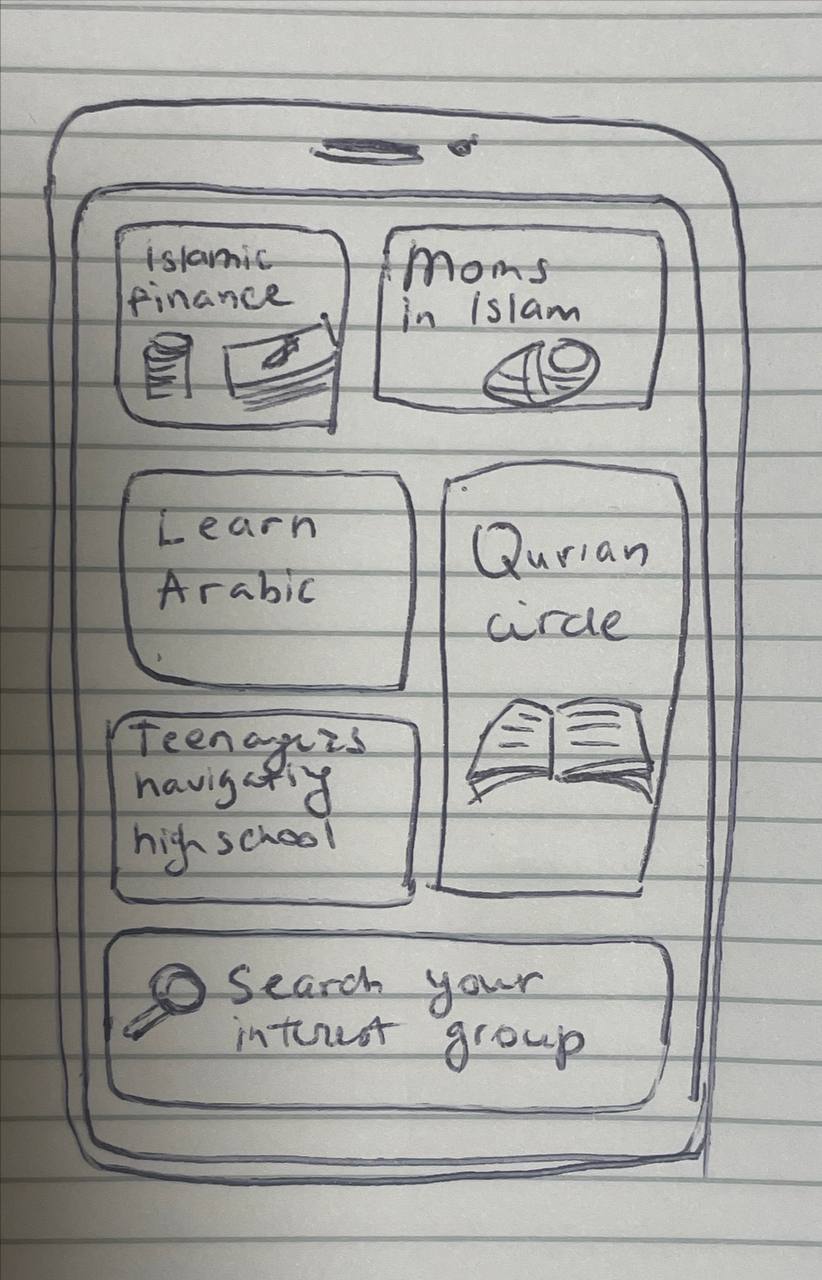 Islamic
finance
Moms
in Islam
Learn
Arabic
Qurian
circle
Teenagers
navigating
high school
Search your
interest group